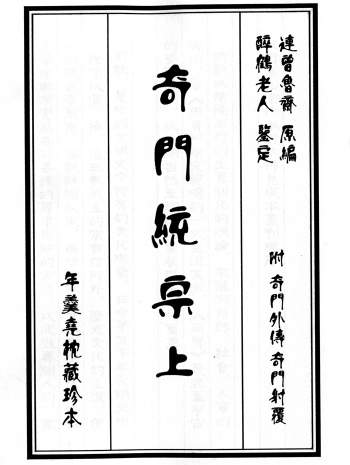 達曾魯齋 原編
醉鶴老人 鑒定
附 奇門外傳 奇門射覆
奇門統宗上
年羹堯枕藏珍本